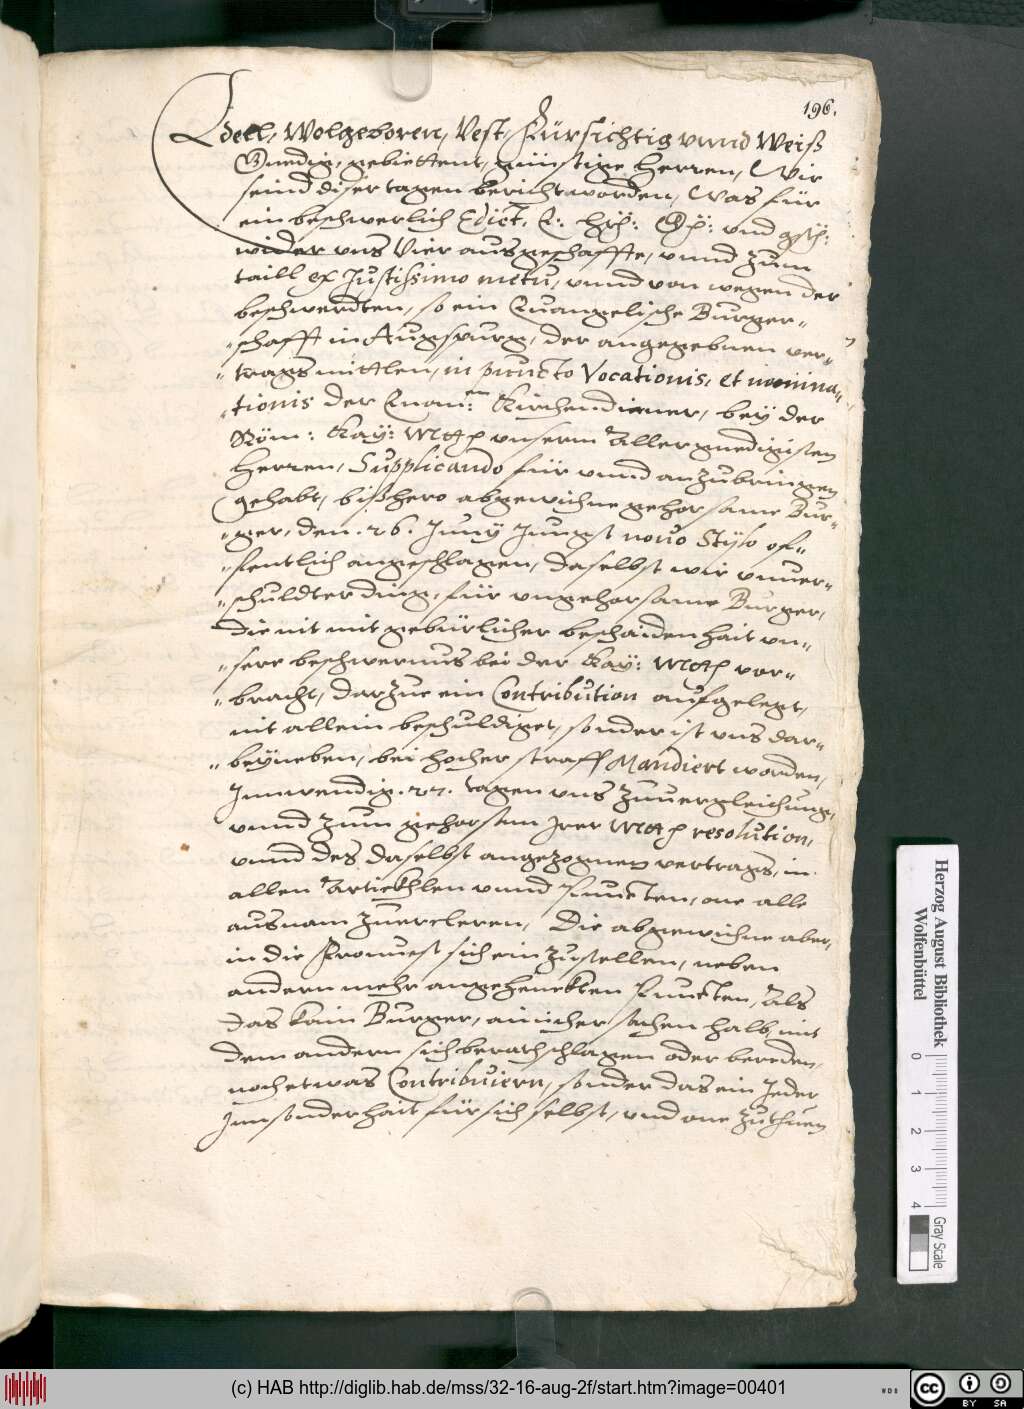 196.
Edell, Wolgeboren, Vest, Fürsichtig vnnd Weiß
Gnedig, gebiettent, günstige Herren, Wir
seind diser tagen bericht worden, Was für
ein beschwerlich Edict, E: Hrl: Gn: vnd gst:
wider vns Vier ausgeschaffte, vnnd zum
taill ex Justissimo metu, vnnd von wegen der
beschwerdten, so ein Euangelische Burger„
„schafft in Augspurg, der angegebnen ver„
„trags mittlen, in puncto Vocationis, et nomina„
„tionis der Euan: en Kirchendiener, bey der
Röm: Kay: Mtt unserm Allergnedigisten
Herren, Supplicando für vnnd anzubringen
gehabt, bißhero abgewichne gehorsame Bur„
„ger, den .26. Junÿ Jungst nouo Stÿlo of„
„fentlich angeschlagen, daselbst wir vnuer„
„schuldter ding, für vngehorsame Burger,
die nit mit gebürlicher beschaidenhait vn„
„sere beschwernus bei der Kay: Mtt vor„
„bracht, darzue ein Contribution aufgelegt,
nit allein beschuldiget, sonder ist vns dar„
„beyneben, bei hocher straff Mandiert worden,
Innwendig .27. tagen vns zuuergleichung,
vnnd zum gehorsam Irer Mtt resolution,
vnnd des daselbst angezognen vertrags, in
allen Artickhlen vnnd Puncten, one alle
ausnam zuercleren, Die abgewichne aber,
in die Fronuest sich einzustellen, neben
andern mehr angehenckten Puncten, Als
das kain Burger, ainicher sachen halb, mit
dem andern sich berathschlagen oder bereden,
noch etwas Contribuiern, sonder das ein Jeder
Innsonderhait für sich selbst, vnd one zuthuen
Herzog August Bibliothek
Wolfenbüttel
0 1 2 3 4
Gray Scale
(c) HAB http://diglib.hab.de/mss/32-16-aug-2f/start.htm?image=00401
WDB
cc BY SA